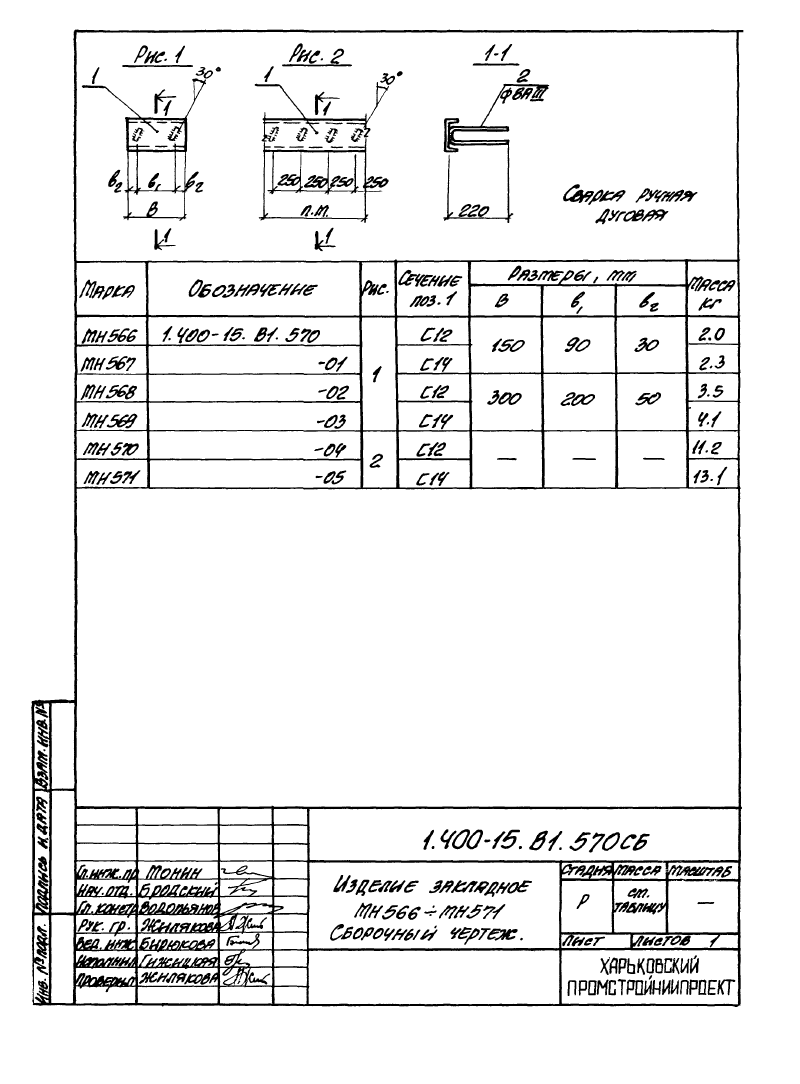 Рис. 1
Рис. 2
1-1
1
30°
1
30°
2
Ф8АIII
1
1
в2 в1 в2
250 250 250 250
В
п.м.
220
1
1
Сварка ручная
дуговая
Марка Обозначение Рис. Сечение поз. 1 Размеры, мм Масса кг
В в1 в2
МН566 1.400-15. В1. 570 1 С12 150 90 30 2.0
МН567 -01 С14 2.3
МН568 -02 С12 300 200 50 3.5
МН569 -03 С14 4.1
МН570 -04 2 С12 — — — 11.2
МН571 -05 С14 13.1
Взам. инв. №
Подпись и дата
Инв. № подл.
1.400-15. В1. 570СБ
Гл. инж. пр Монин
Нач. отд. Бродский
Гл. констр Водопьянов
Рук. гр. Жилякова
Вед. инж Бирюкова
Исполнил Гижицкая
Проверил Жилякова
Изделие закладное
МН566÷МН571
Сборочный чертеж.
Стадия Масса Масштаб
Р см. таблицу —
Лист Листов 1
ХАРЬКОВСКИЙ
ПРОМСТРОЙНИИПРОЕКТ